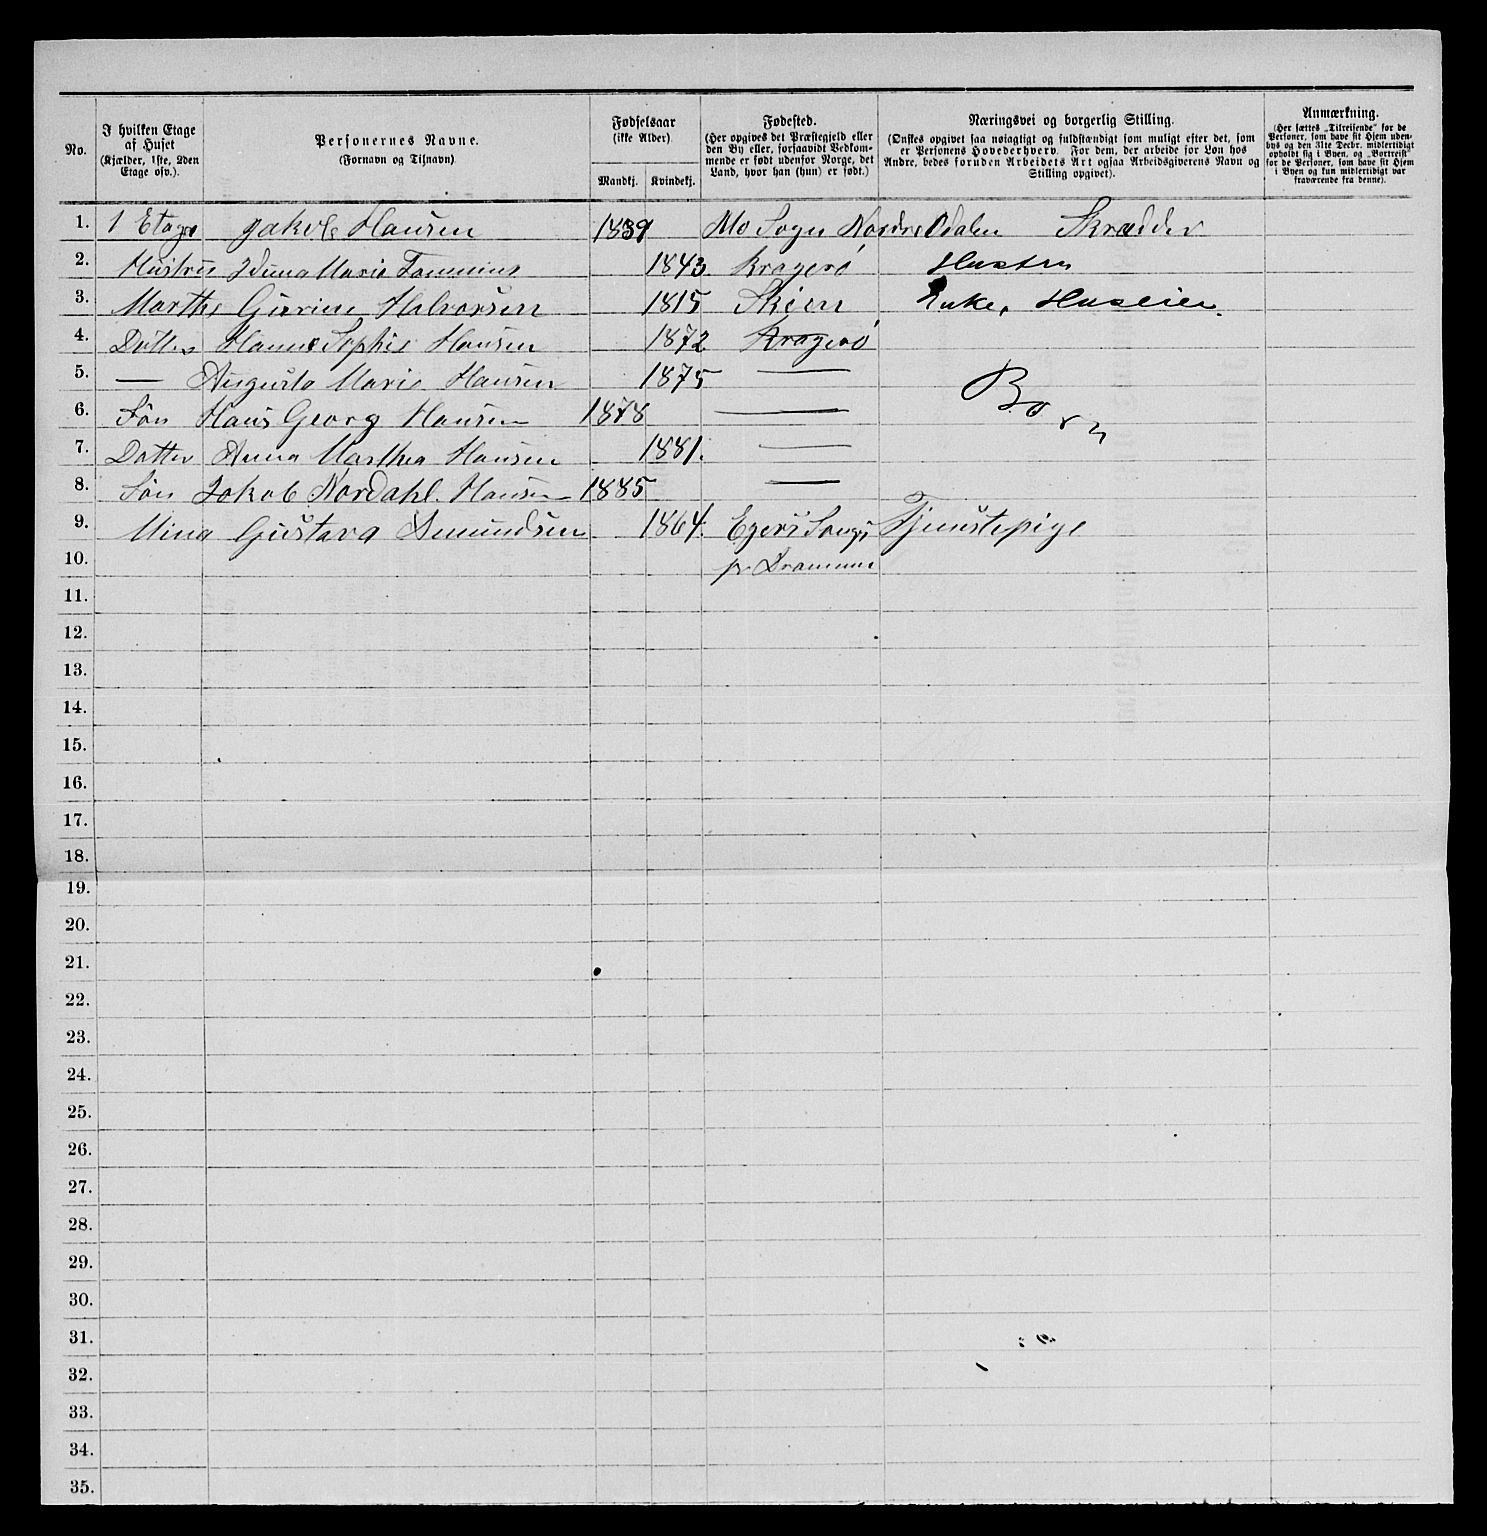 No. I hvilken Etage af Huset (Kjælder, 1ste, 2den Etage osv.). Personernes Navne. (Fornavn og Tilnavn) Fødselsaar (ikke Alder) Mandkj. Kvindekj. Fødested. (Her opgives det Præstegjeld eller den By eller, forsaavidt Vedkommende er født udenfor Norge, det Land, hvor han (hun) er født.) Næringsvei og borgerlig Stilling. (Ønskes opgivet saa nøiagtigt og fuldstændigt som muligt efter det, som er Personens Hovederhverv. For dem, der arbeide for Løn hos Andre, bedes foruden Arbeidets Art ogsaa Arbeidsgiverens Navn og Stilling opgivet). Anmærkning. (Her sættes „Tilreisende" for de Personer, som have sit Hjem udenbys og den 31te Decbr. midlertidigt opholdt sig i Byen, og „Bortreist" for de Personer, som have sit Hjem i Byen og kun midlertidigt var fraværende fra denne).
1. 1 Etage Jakob Hansen 1839 Mo Sogn Nordre Odalen Skrædder
2. Hustru Iduna Marie 1843. Kragerø Hustru
3. Marthe Gurine Halvorsen 1815 Skien Enke, Huseier.
4. Datter Hanne Sophie Hansen 1872 Kragerø
5. — Augusta Marie Hansen 1875 —
6. Søn Hans Georg Hansen 1878 — Børn
7. Datter Anna Marthea Hansen 1881. —
8. Søn Jakob Nordahl. Hansen 1885 —
9. Mina Gustava Amundsen. 1864. Egers Sogn Tjenstepige
10. pr Drammen
11.
12.
13.
14.
15.
16.
17.
18.
19.
20.
21.
22.
23.
24.
25.
26.
27.
28.
29.
30.
31.
32.
33.
34.
35.